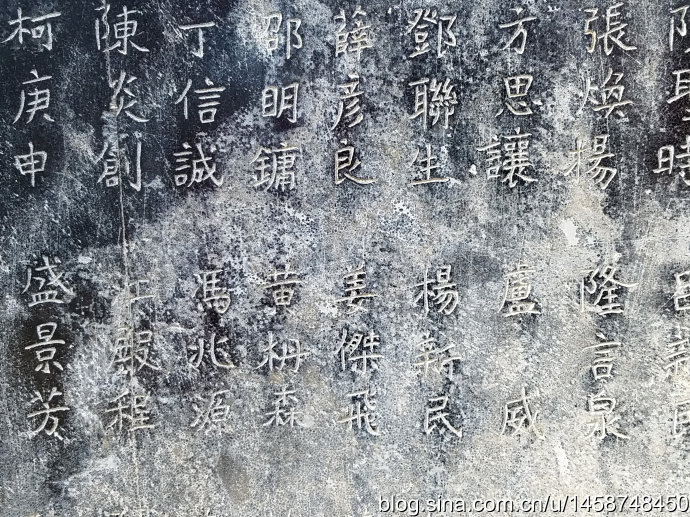 張煥楊
方思讓
鄧聯生
薛彥良
邵明鏞
丁信誠
陳炎創
柯庚申
隆言泉
盧威
楊新民
姜傑飛
黄枬森
馮兆源
程
盛景芳
blog.sina.com.cn/u/1458748450